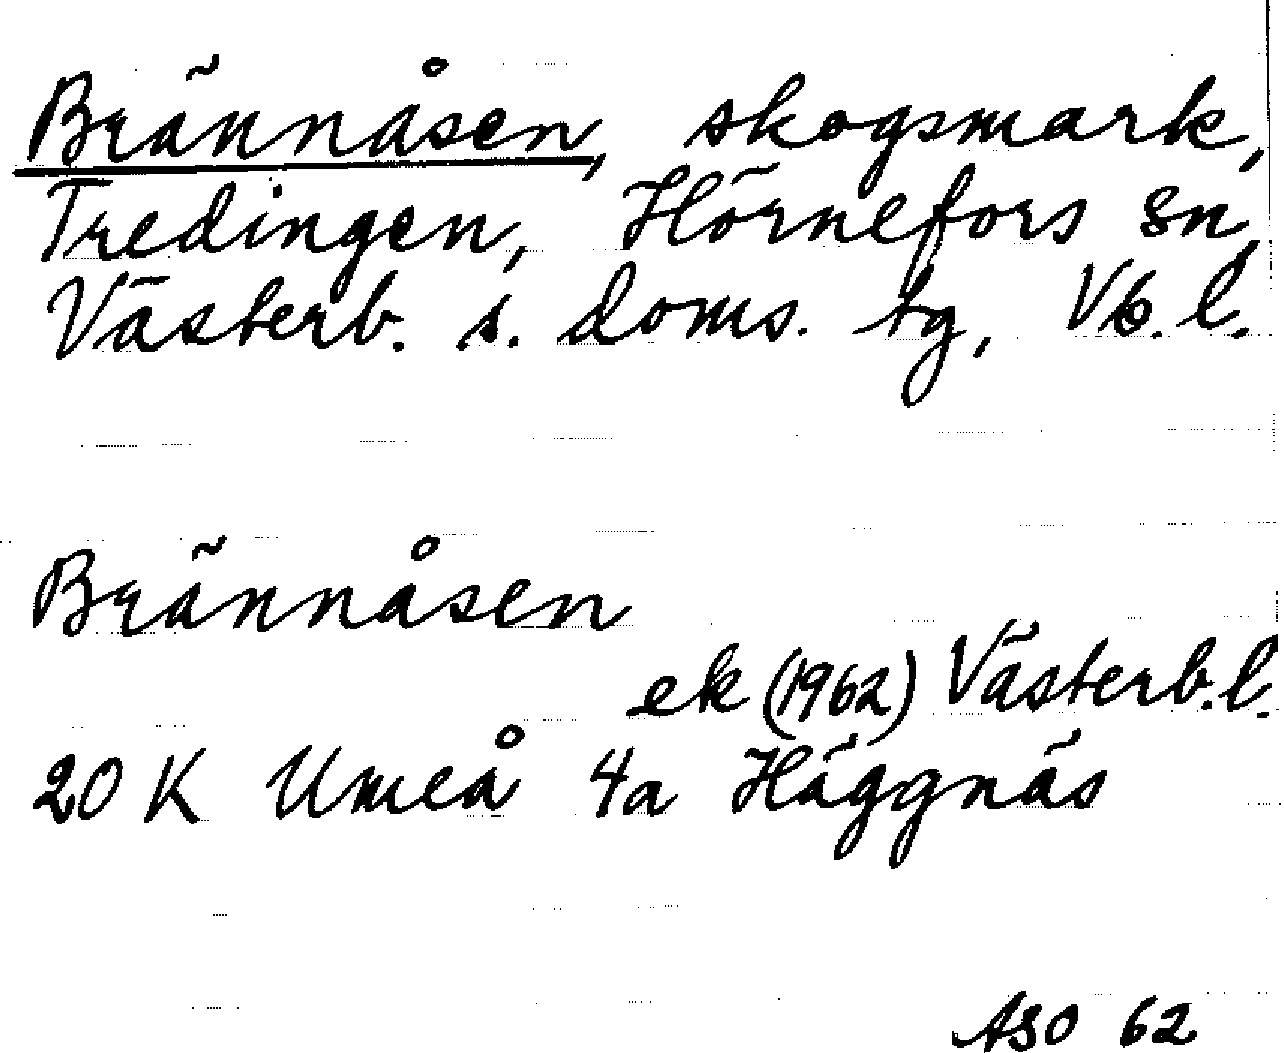 Brännåsen, skogsmark,
Tredingen, Hörnefors sn,
Västerb. s. doms. tg, Vb. l.
Brännåsen
ek (1962) Västerb. l.
20 K Umeå 4a Häggnäs
ASO 62